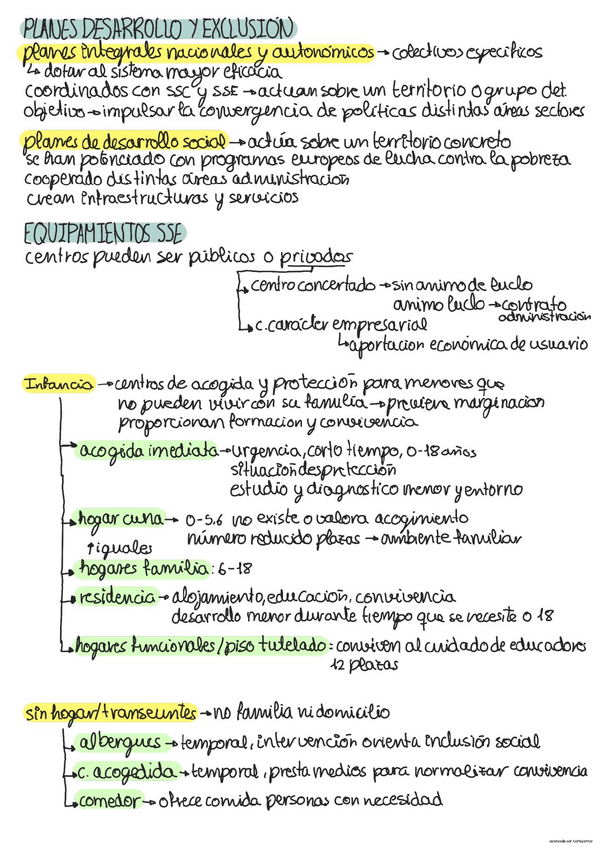 PLANES DESARROLLO Y EXCLUSIÓN
planes integrales nacionales y autonómicos → colectivos especificos
↳ dotar al sistema mayor eficacia
coordinados con SSC y SSE → actuan sobre un territorio o grupo det.
objetivo → impulsar la convergencia de políticas distintas áreas sectores
planes de desarrollo social → actúa sobre un territorio concreto
se han potenciado con programas europeos de lucha contra la pobreza
cooperado distintas áreas administración
crean infraestructuras y servicios
EQUIPAMIENTOS SSE
centros pueden ser públicos o privados
centro concertado → sin animo de luclo
animo luclo → contrato
administración
c. carácter empresarial
↳ aportacion económica de usuario
Infancia → centros de acogida y protección para menores que
no pueden vivir con su familia → previene marginacion
proporcionan formacion y convivencia
acogida imediata → urgencia, corto tiempo, 0-18 años
situación despretección
estudio y diagnostico menor y entorno
hogar cuna → 0-5,6 no existe o valora acogimiento
número reducido plazas → ambiente familiar
↑ iguales
hogares familia: 6-18
residencia → alojamiento, educación, convivencia
desarrollo menor durante tiempo que se necesite o 18
hogares funcionales/piso tutelado: conviven al cuidado de educadores
12 plazas
sin hogar/transeuntes → no familia ni domicilio
albergues → temporal, intervención orienta inclusión social
c. acogedida → temporal, presta medios para normalizar convivencia
comedor → ofrece comida personas con necesidad